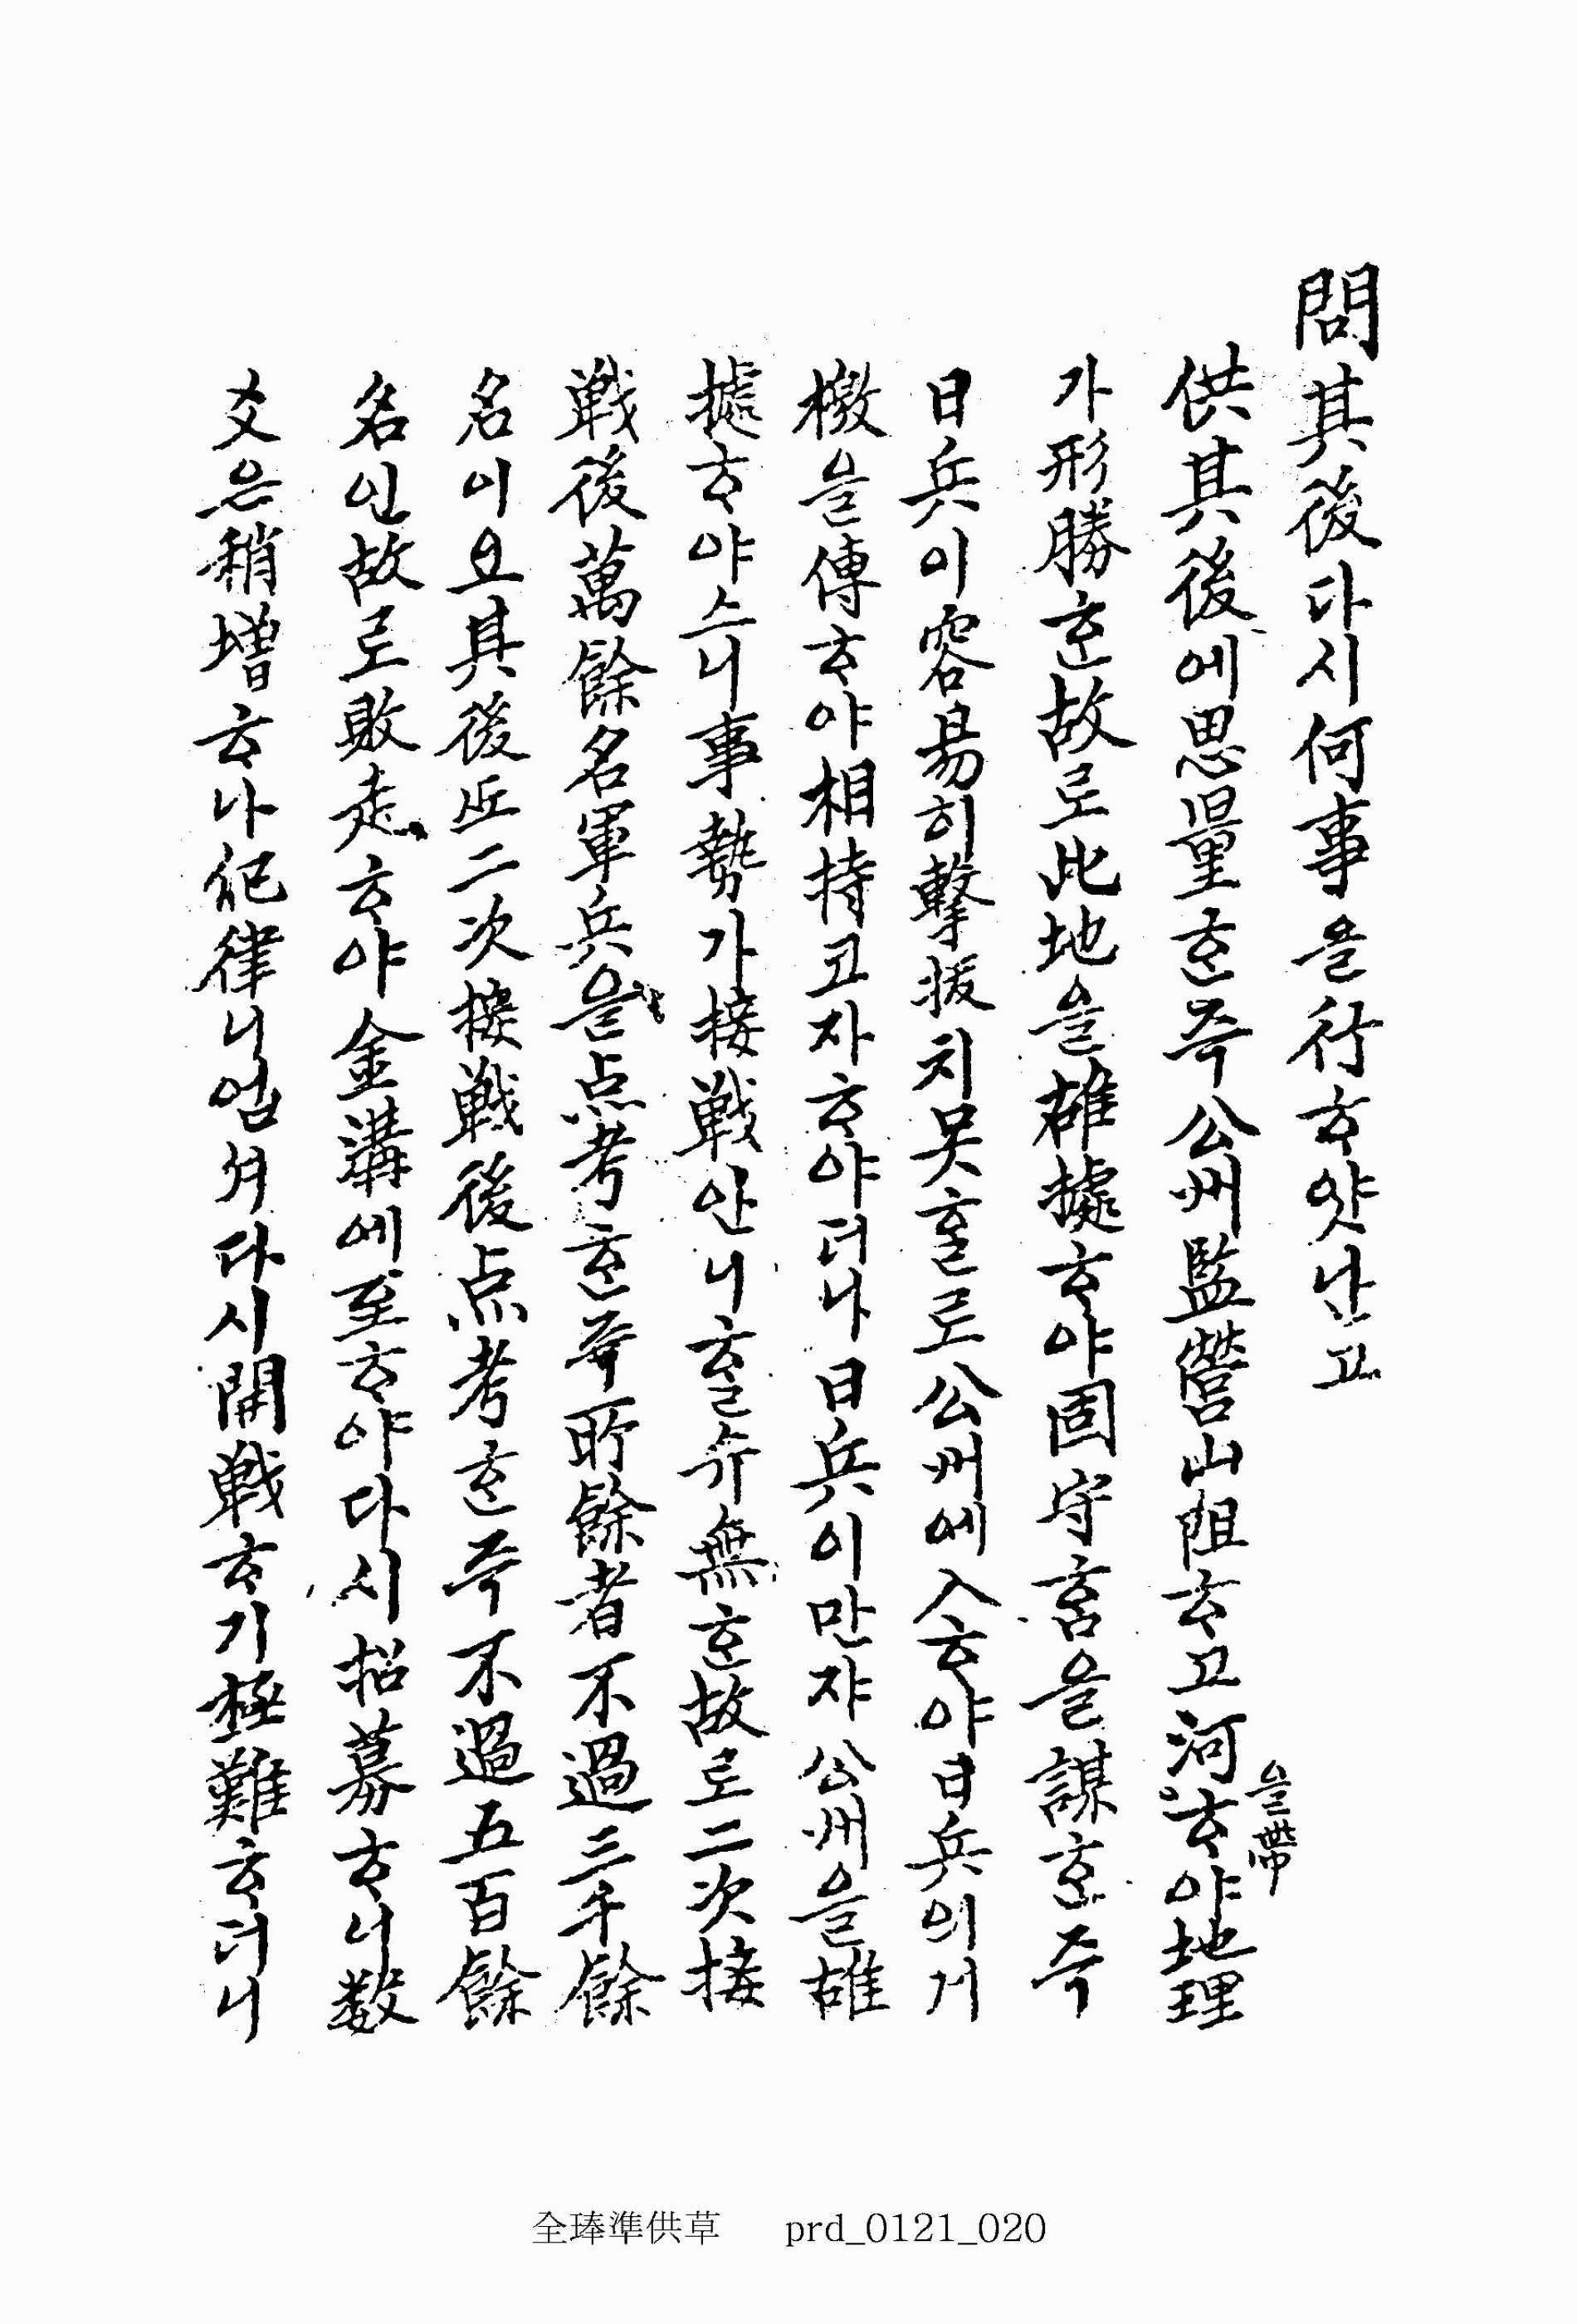 問其後다시何事을行ᄒᆞ얏난고
供其後에思量ᄒᆞᆫ즉公州監營山阻ᄒᆞ고河을帶ᄒᆞ야地理
가形勝ᄒᆞᆫ故로此地을雄據ᄒᆞ야固守ᄒᆞᆷ을謀ᄒᆞᆫ즉
日兵이容易히擊拔치못ᄒᆞᆯ로公州에入ᄒᆞ야日兵의게
檄을傳ᄒᆞ야相持코자ᄒᆞ야더나日兵이만쟈公州을雄
據ᄒᆞ야스니事勢가接戰안니ᄒᆞᆯ슈無ᄒᆞᆫ故로二次接
戰後萬餘名軍兵을点考ᄒᆞᆫ즉所餘者不過三千餘
名이요其後二次接戰後点考ᄒᆞᆫ즉不過五百餘
名인故로敗走ᄒᆞ야金溝에至ᄒᆞ야다시招募ᄒᆞ니数
爻은稍增ᄒᆞ나紀律니업셔다시開戰ᄒᆞ기極難ᄒᆞ더니
全琫準供草 prd_0121_020